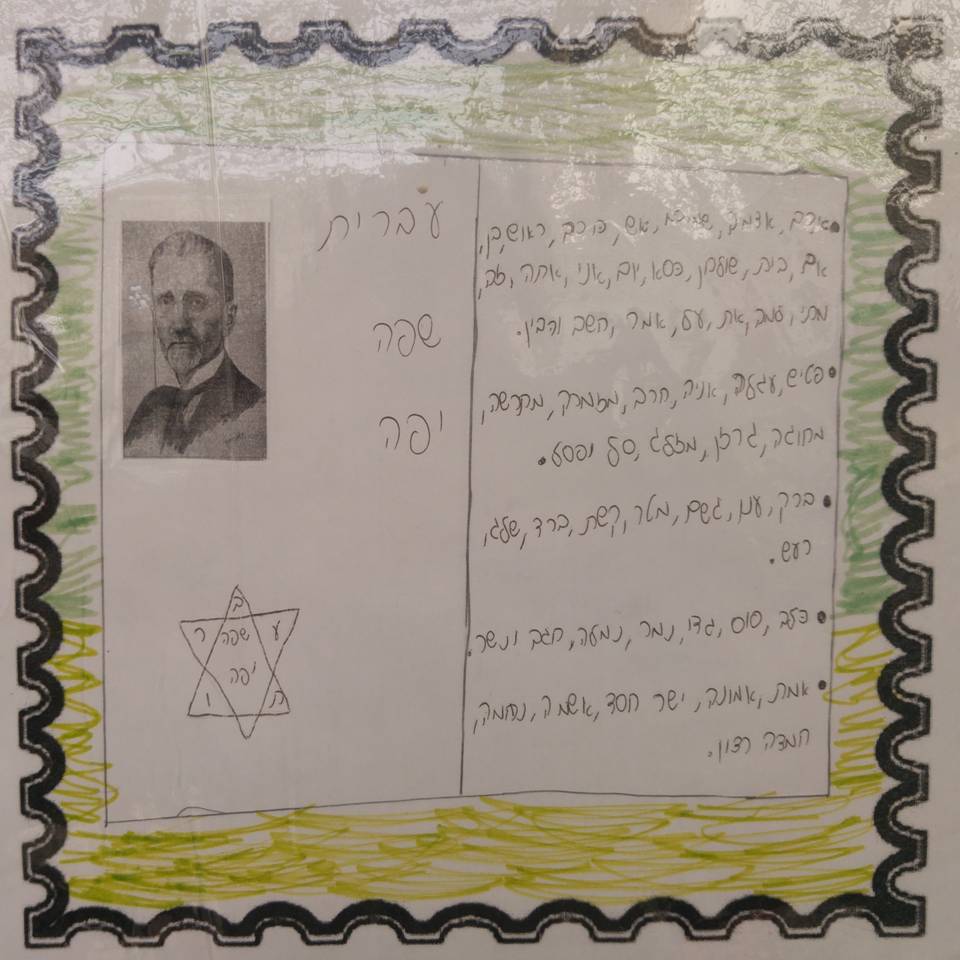 עברית
שפה
יפה
ב
ר שפה ע
יפה
ו ת
אדמה, שמים, אש, כוכב, ראש, בן,
אם, בית, שולחן, כסא, יום, אני, אתה, זב,
מתי, את, על, אמר, חשב והבין.
• פטיש, עגלה, אניה, חרב, מזמרה, מחרשה,
מחוגה, גרזן, מזלג, סל וספסל.
• ברק, ענן, גשם, מטר, קשת, ברד, שלג,
רעש.
• כלב, סוס, גדי, נמר, נמלה, חגב ונשר.
• אמת, אמונה, ישר חסד, אשמה, נחמה,
חמדה רצון.